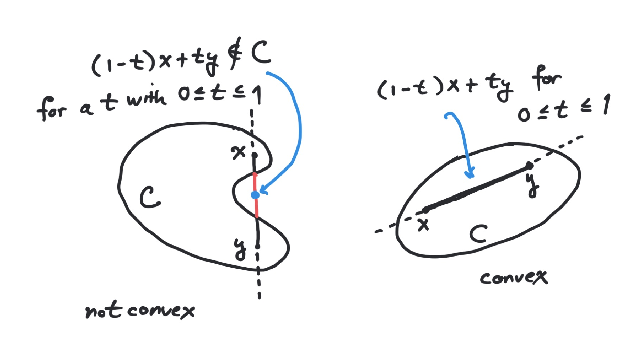 (1-t)x+ty ∉ C
for a t with 0≤t≤1
x
C
y
not convex
(1-t)x+ty for
0≤t≤1
y
x
C
convex